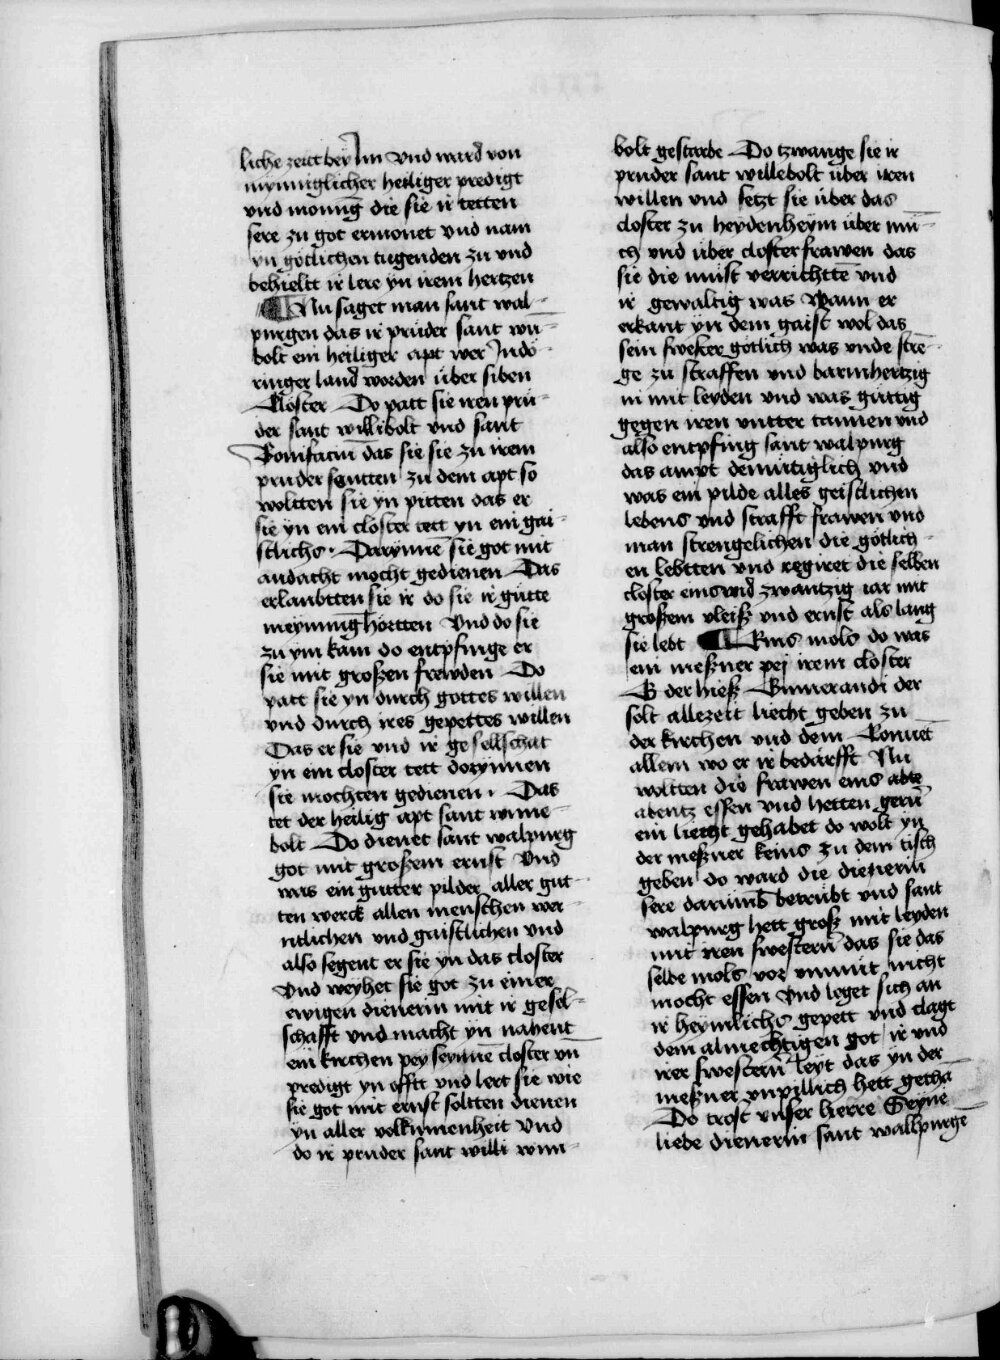 liche zeitt bey Im vnd ward von
mynniglicher heiliger predigt
vnd monūg die sie ir tetten
sere zu got ermonet vnd nam
yn götlichen tugenden zu vnd
behieltt ir lere yn irem hertzen
Nu saget man sant wal-
purgen das ir pruder sant wū-
bolt ein heiliger apt wer Indö-
ringer land worden über siben
Klöster Do patt sie iren pru-
der sant willibolt vnd sant
Bonifaciū das sie sie zu irem
pruder sentten zu dem apt so
woltten sie yn pitten das er
sie yn ein closter tett yn ein gai-
stlichs. Darynnē sie got mit
andacht mocht gedienen Das
erlaubtten sie ir do sie ir gütte
meynnūg hörtten Vnd do sie
zu ym kam do entpfinge er
sie mit großen frewden Do
patt sie yn durch gottes willen
vnd durch ires gepettes willen
Das er sie vnd ir gesellschat
yn ein closter tett dorynnen
sie mochten gedienen. Das
tet der heilig apt sant wine-
bolt Do dienet sant walpurg
got mit großem ernst Vnd
was ein gutter pilder aller gut-
ten werck allen menschen wer-
ntlichen vnd gaistlichen vnd
also segent er sie yn das closter
Vnd weyhet sie got zu einer
ewigen dienerin mit ir gesel-
schafft vnd macht yn nahent
ein kirchen pey seynnē closter vñ
predigt yn offtt vnd lert sie wie
sie got mit ernst soltten dienen
yn aller volkumenheit Vnd
do ir pruder sant willi wnn-
bolt gestarbe Do tzwange sie ir
pruder sant willebolt über iren
willen vnd setzt sie über das
closter zu heydenheym über mū-
ch vnd über closterfrawen das
sie die must verrichttē vnd
ir gewaltig was Wann er
erkant yn dem gaist wol das
sein swester götlich was vnde stre-
ge zu straffen vnd barmhertzig
in mit leyden vnd was güttig
gegen iren vntter tannen vnd
also entpfing sant walpurg
das ampt demütiglich vnd
was ein pilde alles geistlichen
lebens vnd strafft frawen vnd
man strengelichen die götlich-
en lebtten vnd regiret die selben
closter einsvnd zwantzig iar mit
großem vleiß vnd ernst als lang
sie lebt Eins mols do was
ein meßner pej irem closter
der hieß Gumerandi der
solt allezeit liecht geben zu
der kirchen vnd dem Conuēt
allem wo er ir bedarfft Nu
woltten die frawen eins
abentz essen vnd hetten gerū
ein liecht gehabet do wolt yn
der meßner keins zu dem tisch
geben do ward die dienerin
sere darumb betrübt vnd sant
walpurg hett groß mit leyden
mit iren swestern das sie das
selbe mols vor vnmut nicht
mocht essen Vnd leget sich an
ir heymlichs gepett vnd clagt
dem almechtigen got ir vnd
irer swestern leyt das yn der
meßner vnpillich hett gethā
Do trost vnser herre Seyne
liebe dienerin sant wallpurgē